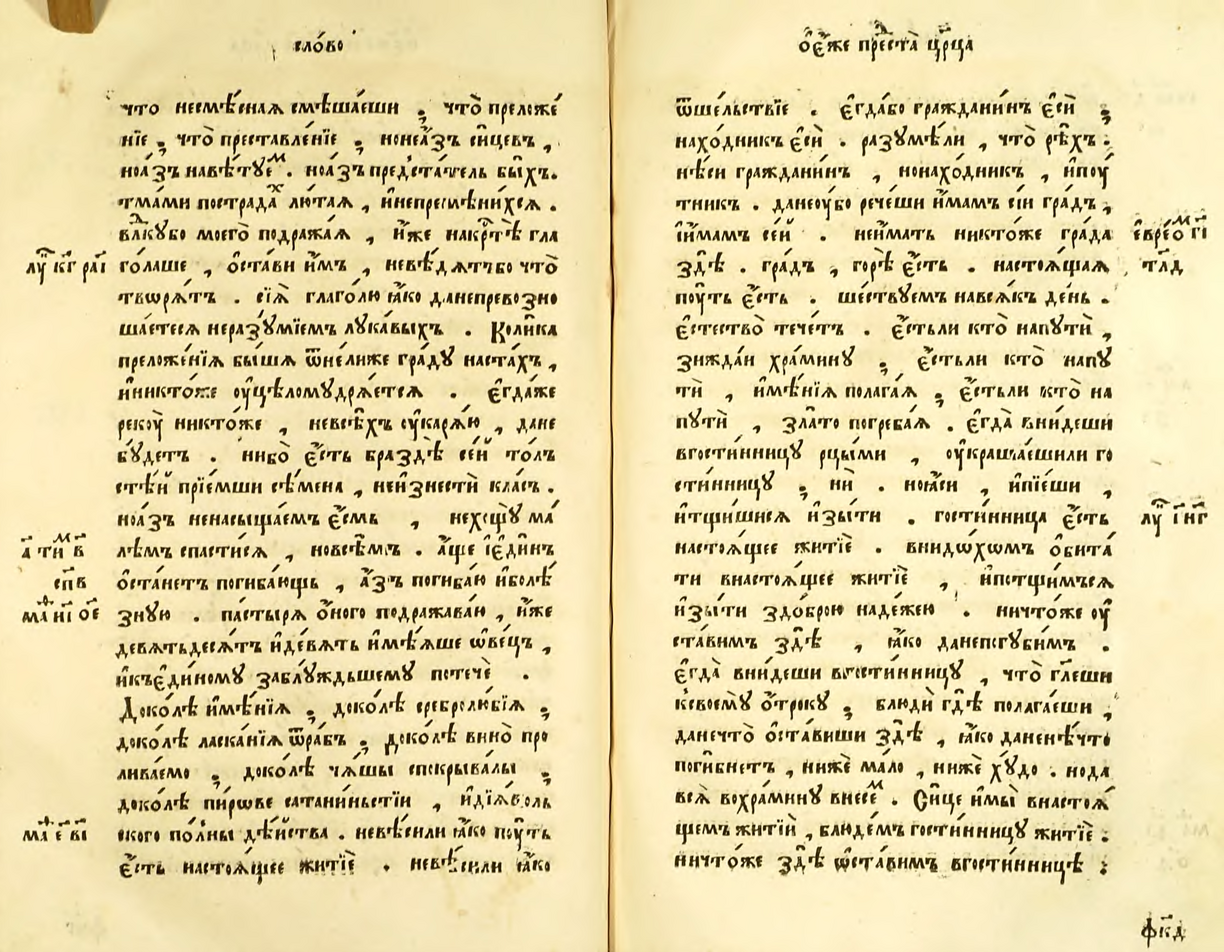 сло́во
что несмѣ́снаѧ смѣша́еши ; что̀ преложе́
нїе ; что̀ преставле́нїе ; ноне́азъ си́цевъ ,
ноа́зъ навѣ́туем . ноа́зъ предста́тель бы́хъ .
тма́ми пострада́х лю́таѧ , и҆непремѣни́хсѧ .
влⷣкубо моего̀ подража́ѧ , и҆́же накрⷭ҇тѣ̀ гла
го́лаше , ѡ҆ста́ви и҆̀мъ , невѣ́дѧтъбо что̀
творѧ́тъ . сїѧ̀ глаго́лю ꙗ҆́ко данепревозно
ша́етесѧ неразꙋ́мїемъ лꙋка́выхъ . Коли̑ка
преложе́нїѧ бы́шѧ ѿне́лиже гра́дꙋ наста́хъ ,
и҆никто́же оу҆цѣломꙋ́дрѧетсѧ . є҆гда́же
рекꙋ̀ никто́же , невсѣ́хъ оу҆карѧ́ю , да́не
бꙋ́детъ . ни́бо є҆́сть браздѣ̀ се́й то́лъ
стѣ́й прїе́мши сѣ́мена , неи҆знестѝ кла́съ .
ноа́зъ ненасыща́емъ є҆́смь , нехощꙋ̀ ма́
лѣмъ спасти́сѧ , новсѣ́мъ . а҆́ще і҆є҆ди́нъ
ѡ҆ста́нетъ погиба́ющь , а҆́зъ погиба́ю и҆болѣ́
знꙋю . па́стырѧ о҆́ного подража́ваю , и҆́же
де́вѧтьдесѧ́тъ и҆де́вѧть и҆мѣ́ѧше ѡ҆ве́цъ ,
и҆къе҆ди́номꙋ заблꙋ́ждьшемꙋ потечѐ .
Доко́лѣ и҆мѣ́нїѧ ; доко́лѣ сребролю́бїѧ ;
доко́лѣ ласка́нїѧ ѿра́бъ ; доко́лѣ вино̀ про
лива́емо ; доко́лѣ ча́шы спокрыва́лы ;
доко́лѣ пи́рове сатани́ньстїи , и҆дїѧ́воль
ского по́лны дѣ́йства . невѣ́сили ꙗ҆́ко пꙋ́ть
є҆́сть настоѧ́щее житїѐ . невѣ́сили ꙗ҆́ко
лꙋⷦ҇ кг раі
а тим в
спв
маⷴ иі ое
маⷴ е ві
о҆є҆́же преста̀ цр҃ца
ѿше́льствїе . є҆гда́бо граждани́нъ є҆сѝ ;
нахо́дникъ є҆сѝ . разꙋмѣ́ли , что̀ рѣ́хъ .
нѣ́си граждани́нъ , нонахо́дникъ , и҆пꙋ́
тникъ . данеоу҆бо рече́ши и҆́мамъ сїи гра́дъ ,
і҆и҆́мамъ се́й . неи҆́мать никто́же гра́да
здѣ̀ . гра́дъ , горѣ̀ є҆́сть . настоѧ́щаѧ
пꙋ́ть є҆́сть . ше́ствꙋемъ навсѧ́къ де́нь .
є҆стество̀ тече́тъ . є҆́стьли кто̀ напꙋтѝ ,
зи́ждаи хра́минꙋ ; є҆́стьли кто̀ напꙋ
тѝ , и҆мѣ́нїѧ полага́ѧ ; є҆́стьли кто̀ на
пꙋтѝ , зла́то погреба́ѧ . є҆гда̀ вни́деши
вгости́нницꙋ рцы́ми , оу҆краша́ешили го
сти́нницꙋ ; нѝ . ноꙗ҆́си , и҆пїе́ши ,
и҆тщи́шисѧ и҆зы́ти . гости́нница є҆́сть
настоѧ́щее житїѐ . внидо́хомъ ѡ҆бита́
ти внастоѧ́щее житїѐ , и҆потщи́мъсѧ
и҆зы́ти здо́брою наде́жею . ничто́же оу҆
ста́вимъ здѣ̀ , ꙗ҆́ко данепогꙋ́бимъ .
є҆гда̀ вни́деши вгости́нницꙋ , что̀ гл҃еши
ксвоемꙋ̀ ѻ҆́трокꙋ ; блюдѝ гдѣ̀ полага́еши ,
данечто̀ ѡ҆ста́виши здѣ̀ , ꙗ҆́ко даненѣ́что
поги́бнетъ , нижѐ ма́ло , нижѐ хꙋ́до . нода
всѧ̀ вохра́минꙋ внесе́м . Си́це и҆мы̀ внастоѧ́
щемъ житїѝ , блюде́мъ гости́нницꙋ житїѐ :
ничто́же здѣ̀ ѡ҆ста́вимъ вгости́нницѣ :
євреѡм гі
тлд
лꙋⷦ҇ і нг
фкд